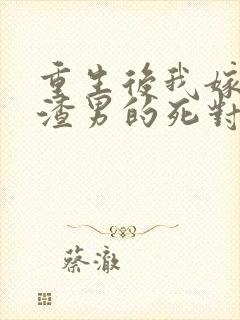 重生後我嫁
渣男的死對
蔡澈